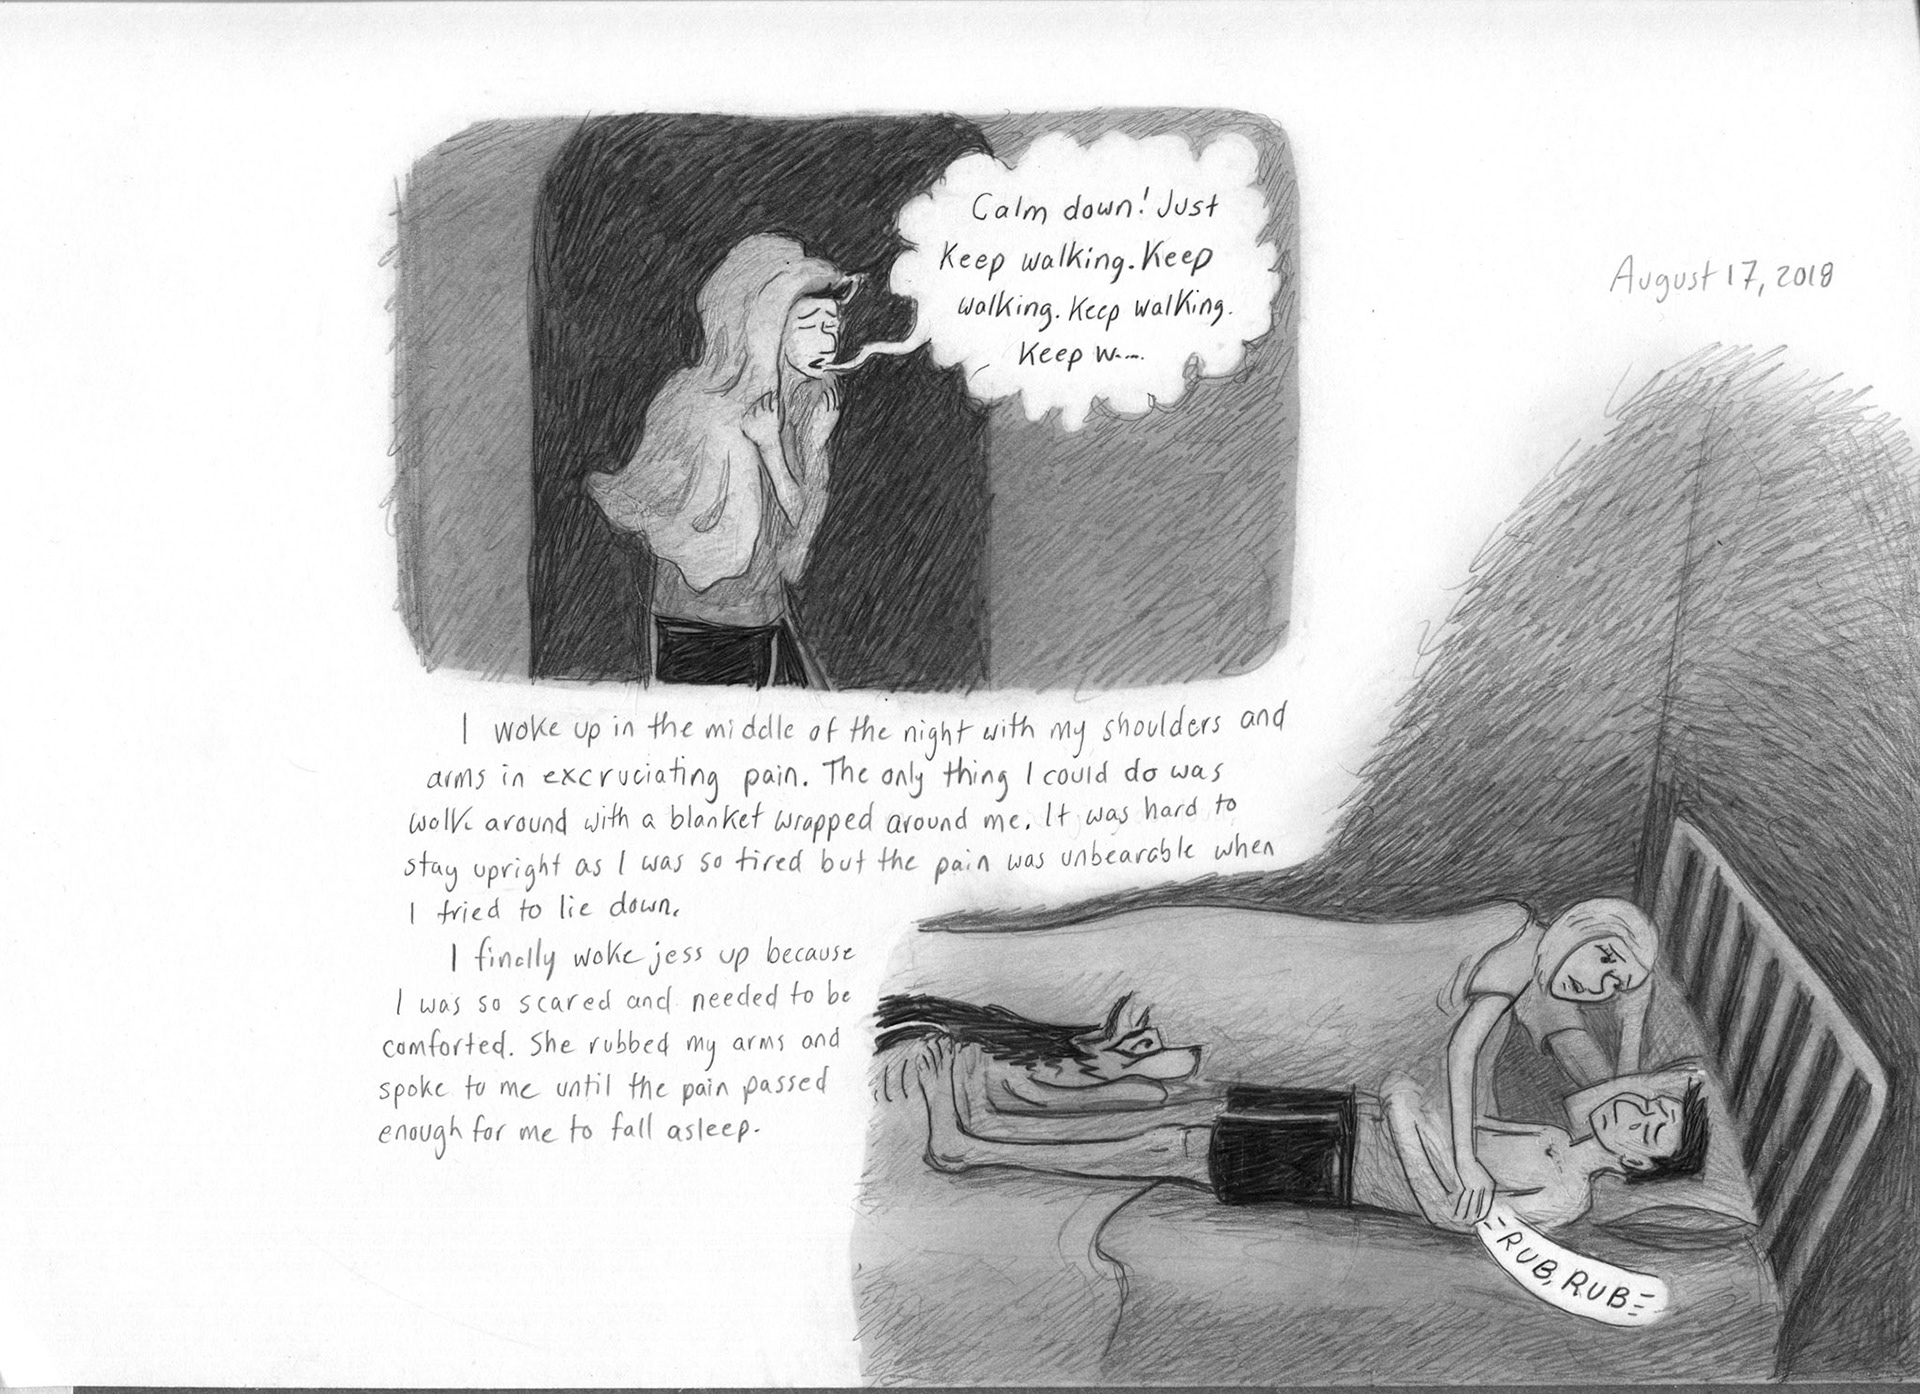 Calm down! Just
Keep walking. Keep
walking. Keep walking.
Keep w....
August 17, 2018
I woke up in the middle of the night with my shoulders and
arms in excruciating pain. The only thing I could do was
walk around with a blanket wrapped around me. It was hard to
stay upright as I was so tired but the pain was unbearable when
I tried to lie down.
I finally woke jess up because
I was so scared and needed to be
comforted. She rubbed my arms and
spoke to me until the pain passed
enough for me to fall asleep.
RUB, RUB